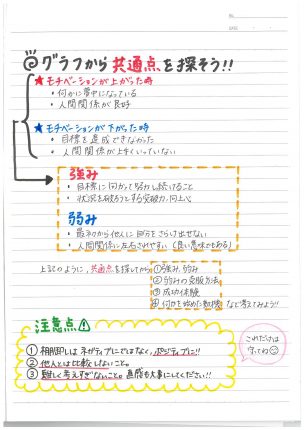 NO.
DATE
◎グラフから共通点を探そう!!
★モチベーションが上がった時
・何かに夢中になっている
・人間関係が良好
★モチベーションが下がった時
・目標を達成できなかった
・人間関係が上手くいっていない
強み
・目標に向かって努力し続けること
・状況を破ろうとする突破力、向上心
弱み
・最初から他人に自分をさらけ出せない
・人間関係に左右されやすい (良い意味でもある)
上記のように、共通点を探してから
①強み、弱み
②弱みの克服方法
③成功体験
④何かを始めた動機 など考えてみよう!!
注意点
①棚卸しは ネガティブにではなく、ポジティブに!!
②他人とは比較しないこと。
③難しく考えすぎないこと。直感も大事にしてください!!
これだけは
守ってね